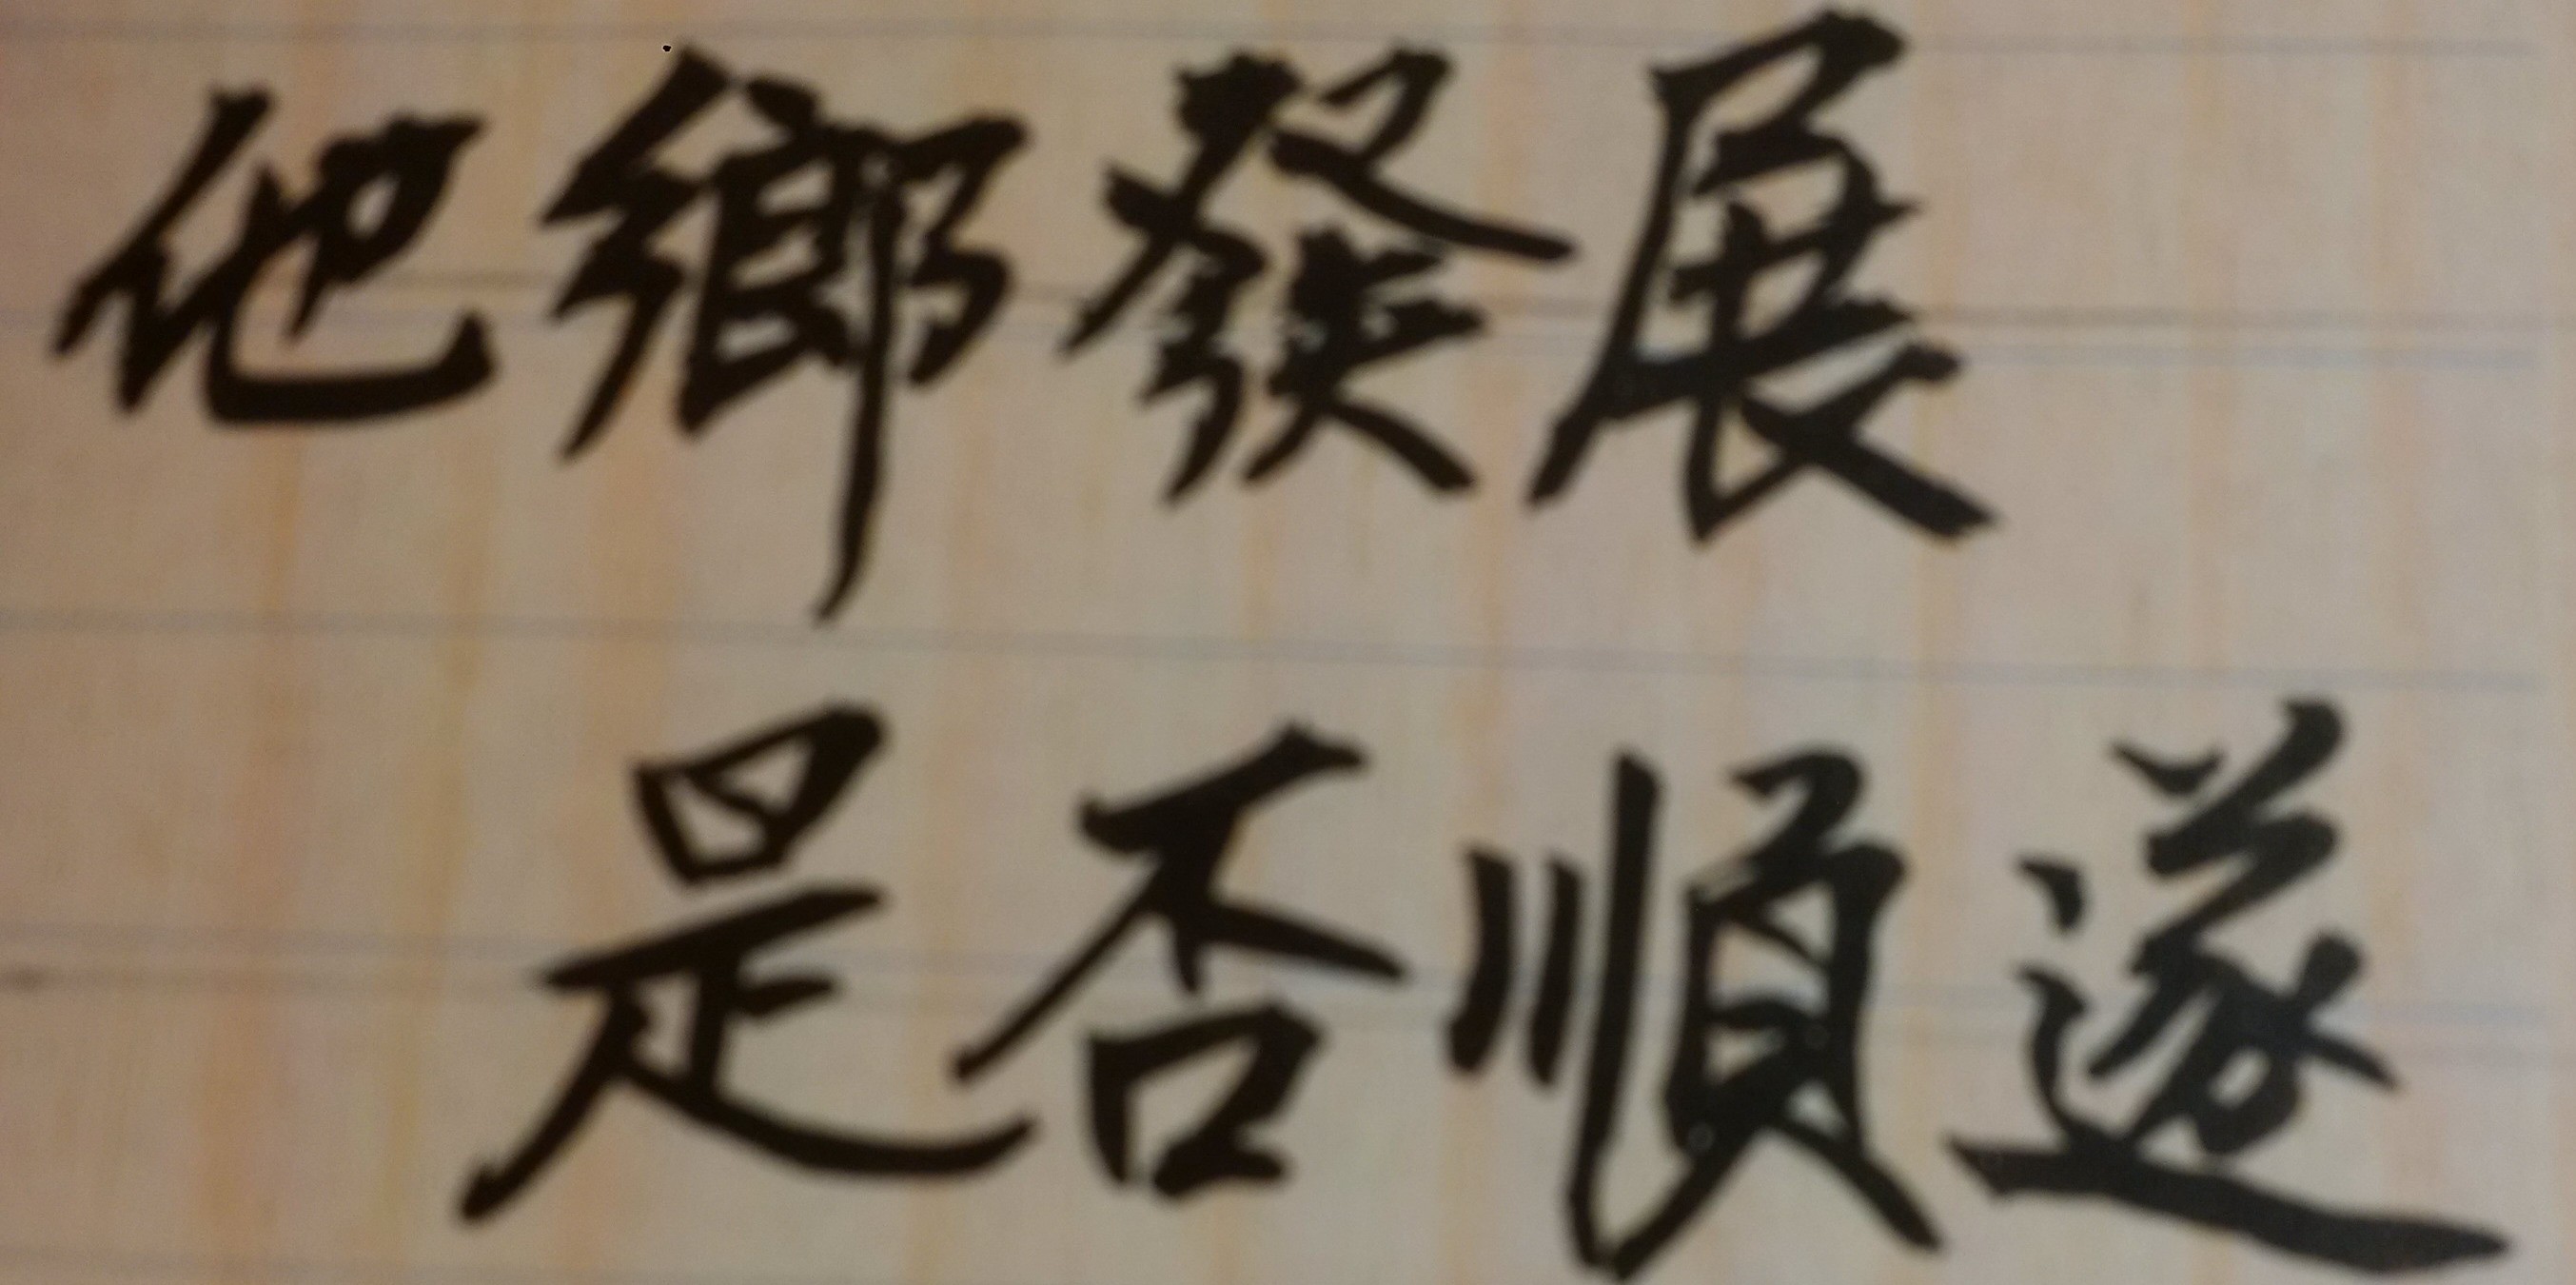 他鄉發展
是否順遂